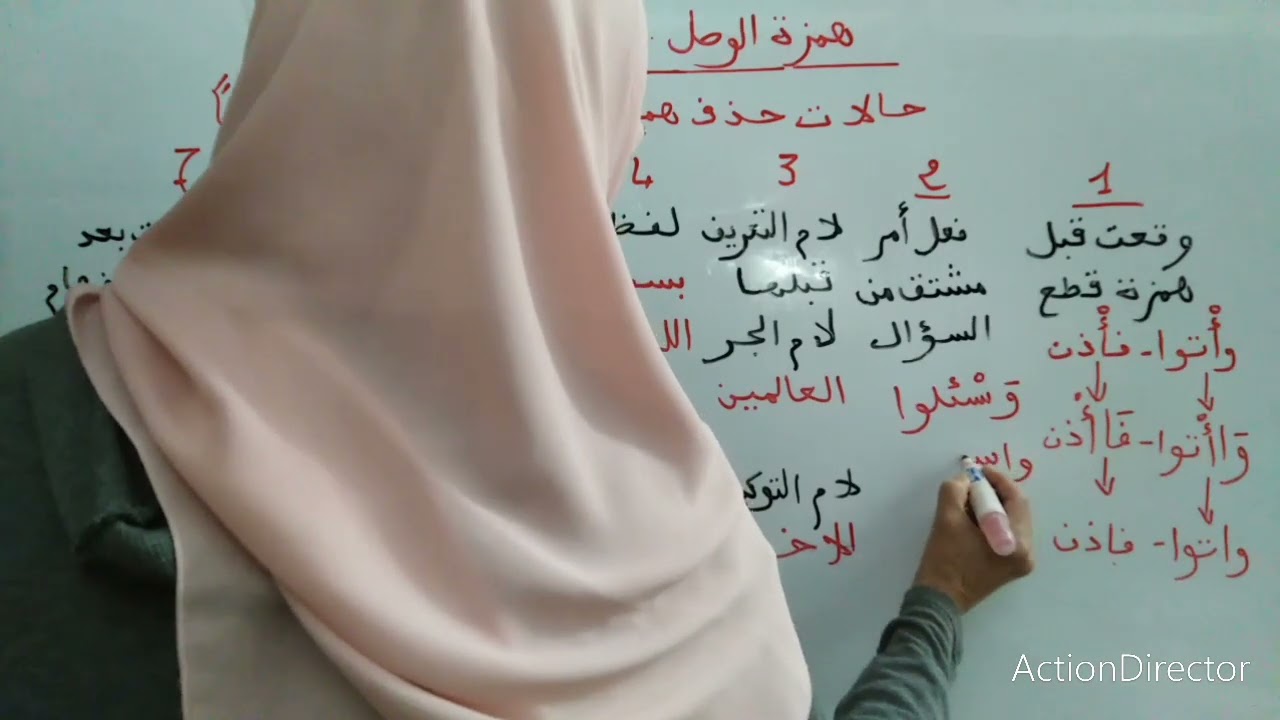 همزة الوصل
حالات حذف هم
1 2 3 4 7
وقعت قبل
همزة قطع
وأْتوا - فأْذن
وَاأْتوا - فَاأْذن
واتوا - فاذن
فعل أمر
مشتق من
السؤال
وَسْئلوا
واس
لام التعريف
قبلها
لام الجر
العالمين
لام التوك
للاخ
لفظ
بسم
الل
بعد
ActionDirector